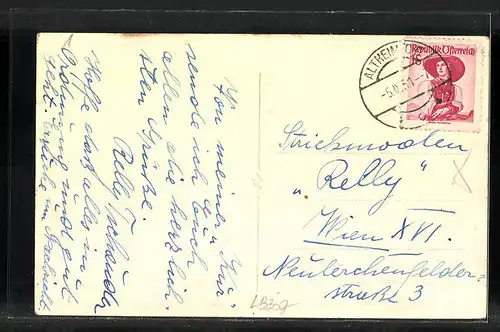 Von meiner "Kur"
sende ich Euch
allen die herzlich-
sten Grüße.
Relly
Hoffe daß alles in
Ordnung und gut
geht.
ALTHEIM
-5.IV.51.-
Republik Österreich
Strickmoden
„Relly"
Wien XVI.
Neulerchenfelder-
straße 3
LB357